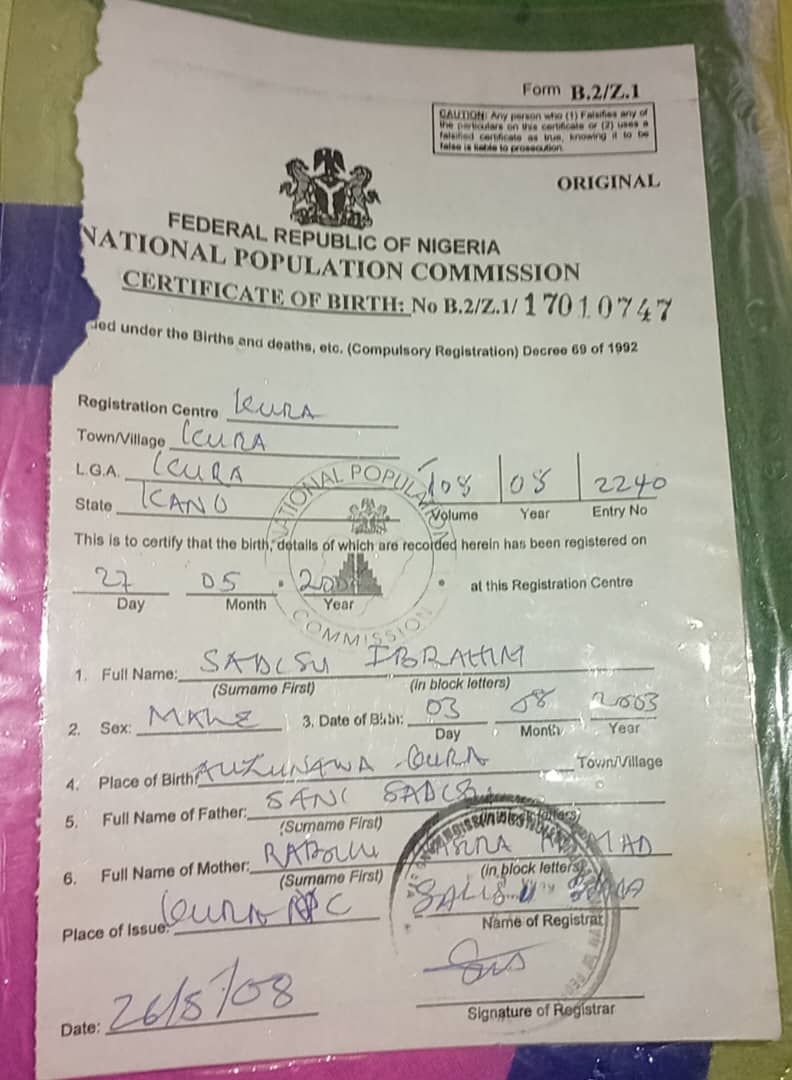 Form B.2/Z.1
CAUTION: Any person who (1) Falsifies any of
the particulars on this certificate or (2) uses a
falsified certificate as true, knowing it to be
false is liable to prosecution.
ORIGINAL
FEDERAL REPUBLIC OF NIGERIA
NATIONAL POPULATION COMMISSION
CERTIFICATE OF BIRTH: No B.2/Z.1/ 17010747
under the Births and deaths, etc. (Compulsory Registration) Decree 69 of 1992
Registration Centre KURA
Town/Village KURA
L.G.A. KURA
State KANO
108 08 2240
Volume Year Entry No
NATIONAL POPULATION COMMISSION
This is to certify that the birth, details of which are recorded herein has been registered on
27 05 at this Registration Centre
Day Month Year
1. Full Name: IBRAHIM
(Surname First) (in block letters)
2. Sex: MALE 3. Date of Birth: 03 08 2003
Day Month Year
4. Place of Birth Town/Village
5. Full Name of Father: SANI
(Surname First) (in block letters)
6. Full Name of Mother:
(Surname First) (in block letters)
Place of Issue: KURA
Name of Registrar
Date: 26/5/08
Signature of Registrar